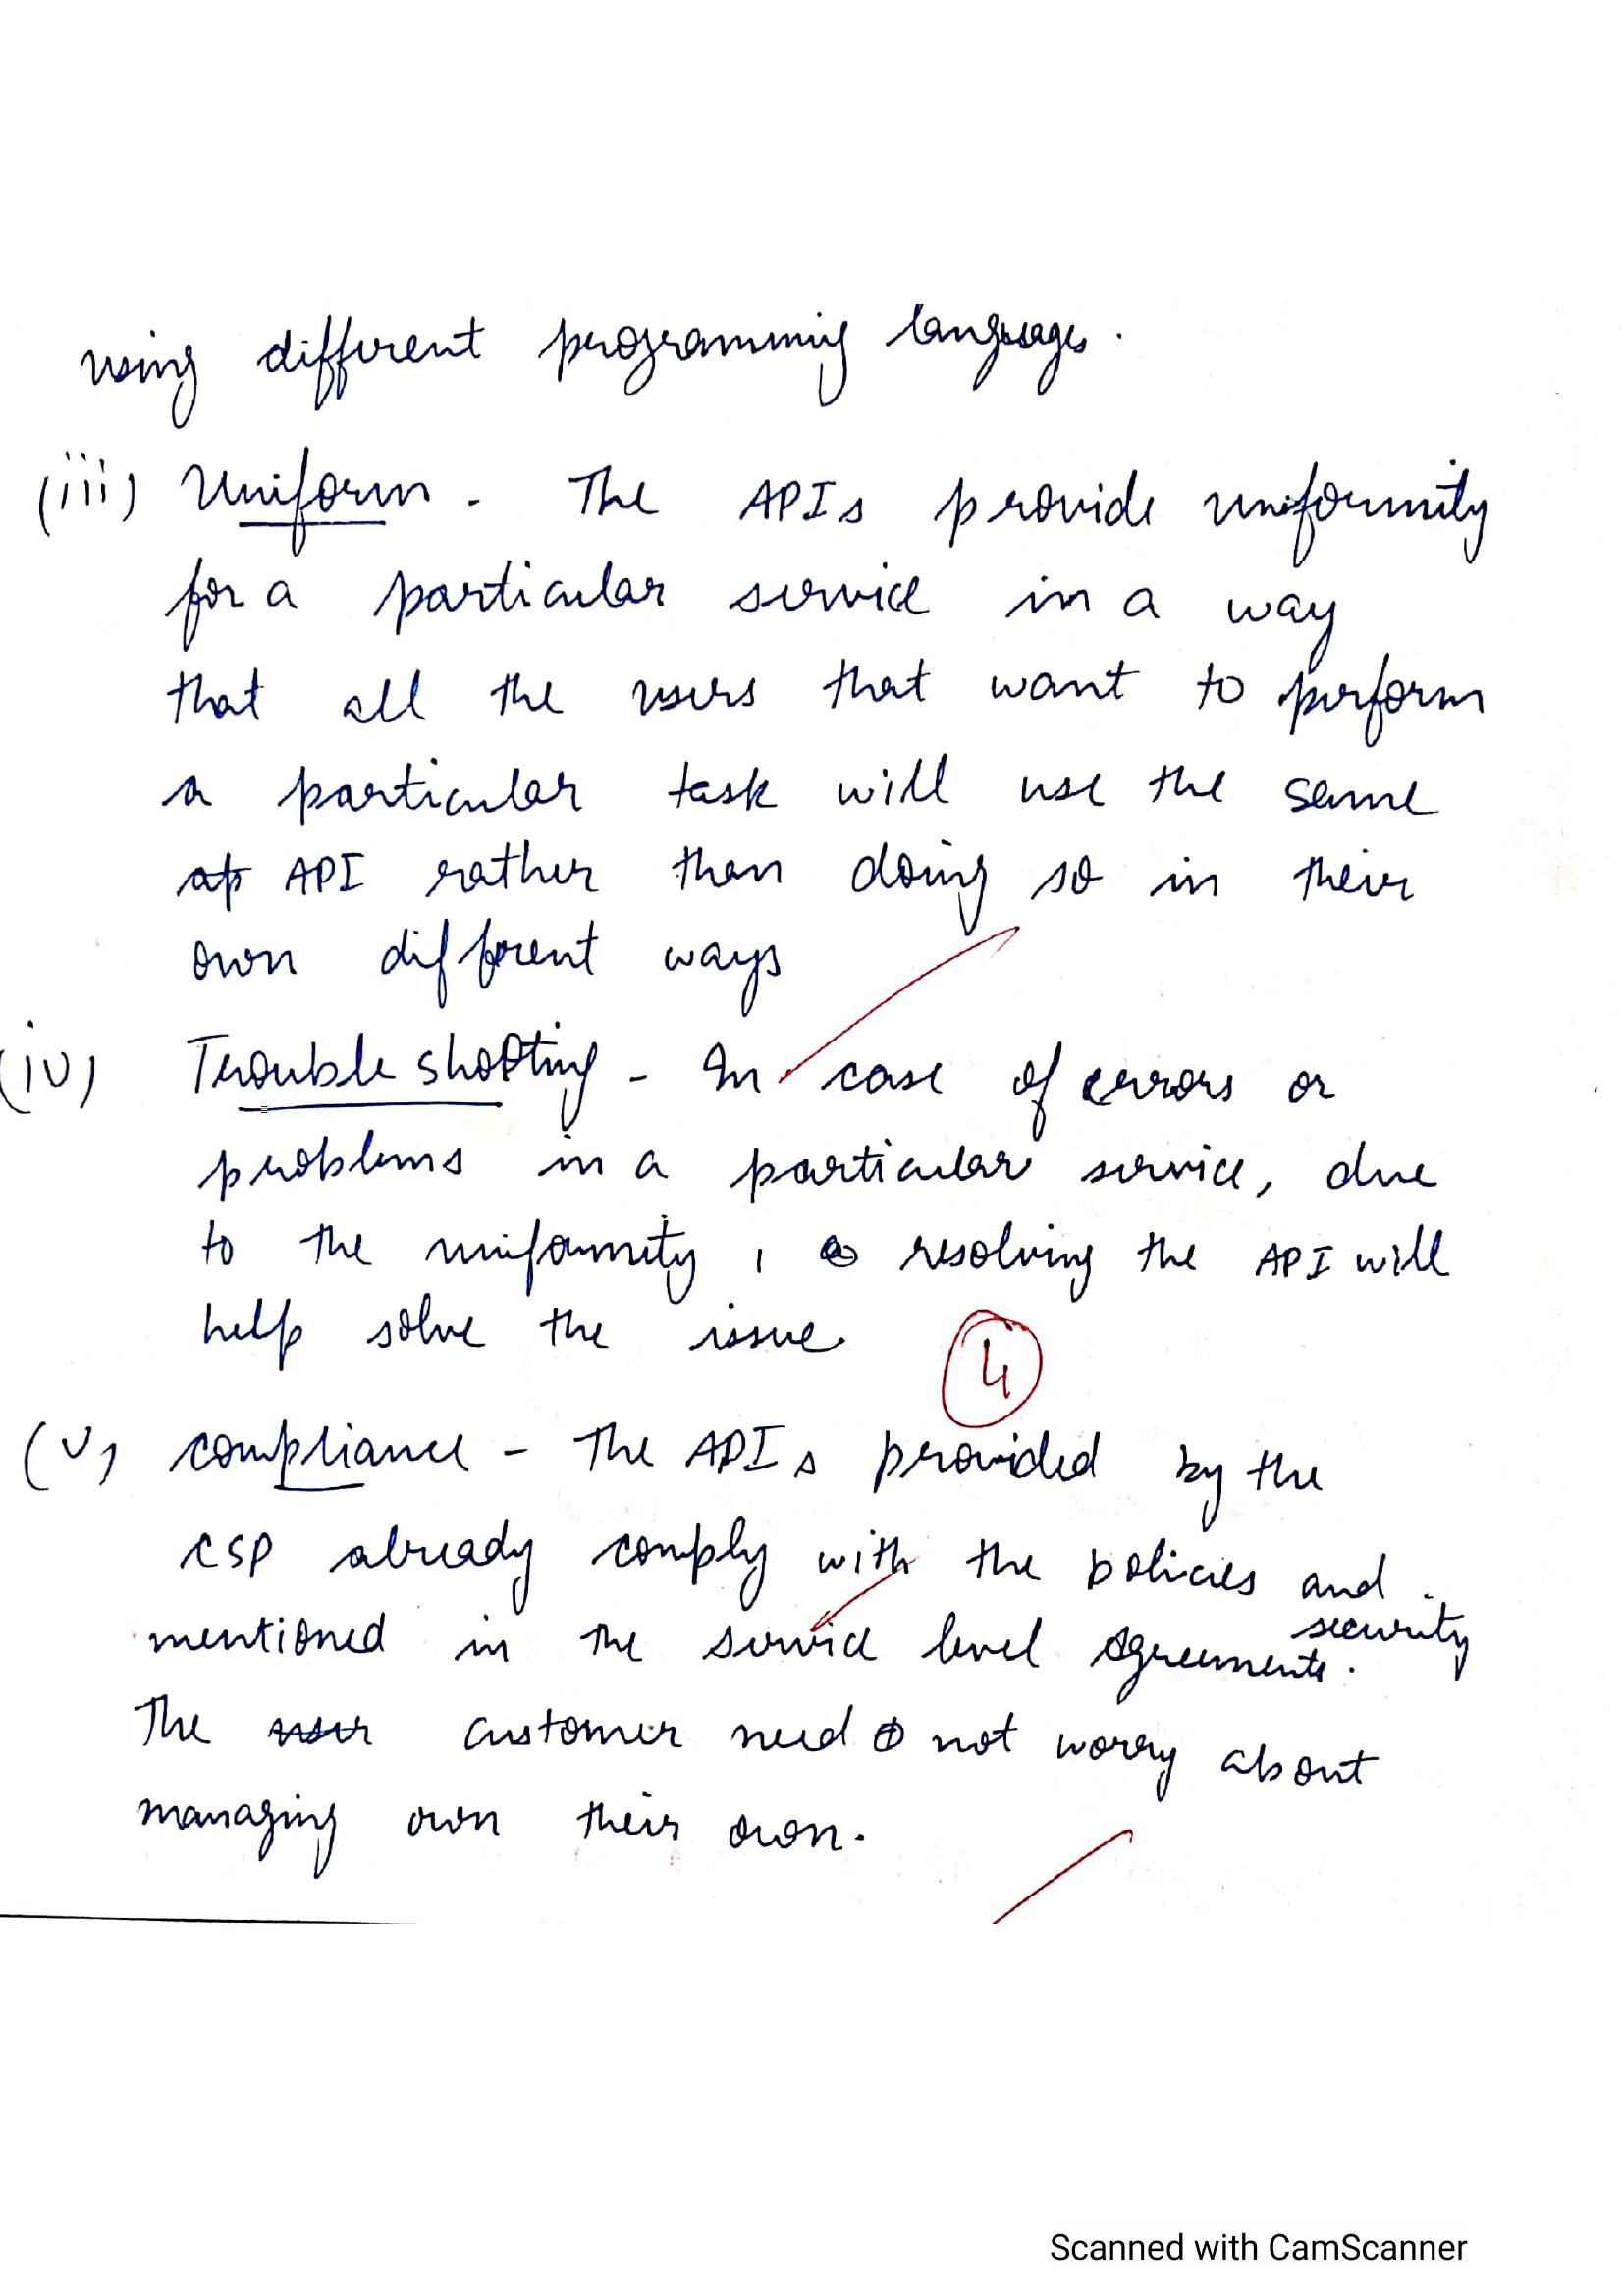 using different programming languages.
(iii) Uniform - The APIs provide uniformity
for a particular service in a way
that all the users that want to perform
a particular task will use the same
ap API rather than doing so in their
own different ways
(iv) Trouble shooting - In case of errors or
problems in a particular service, due
to the uniformity, resolving the API will
help solve the issue.
4
(v) compliance - The APIs provided by the
CSP already comply with the policies and
security
mentioned in the service level agreements.
The user customer need not worry about
managing own their own.
Scanned with CamScanner